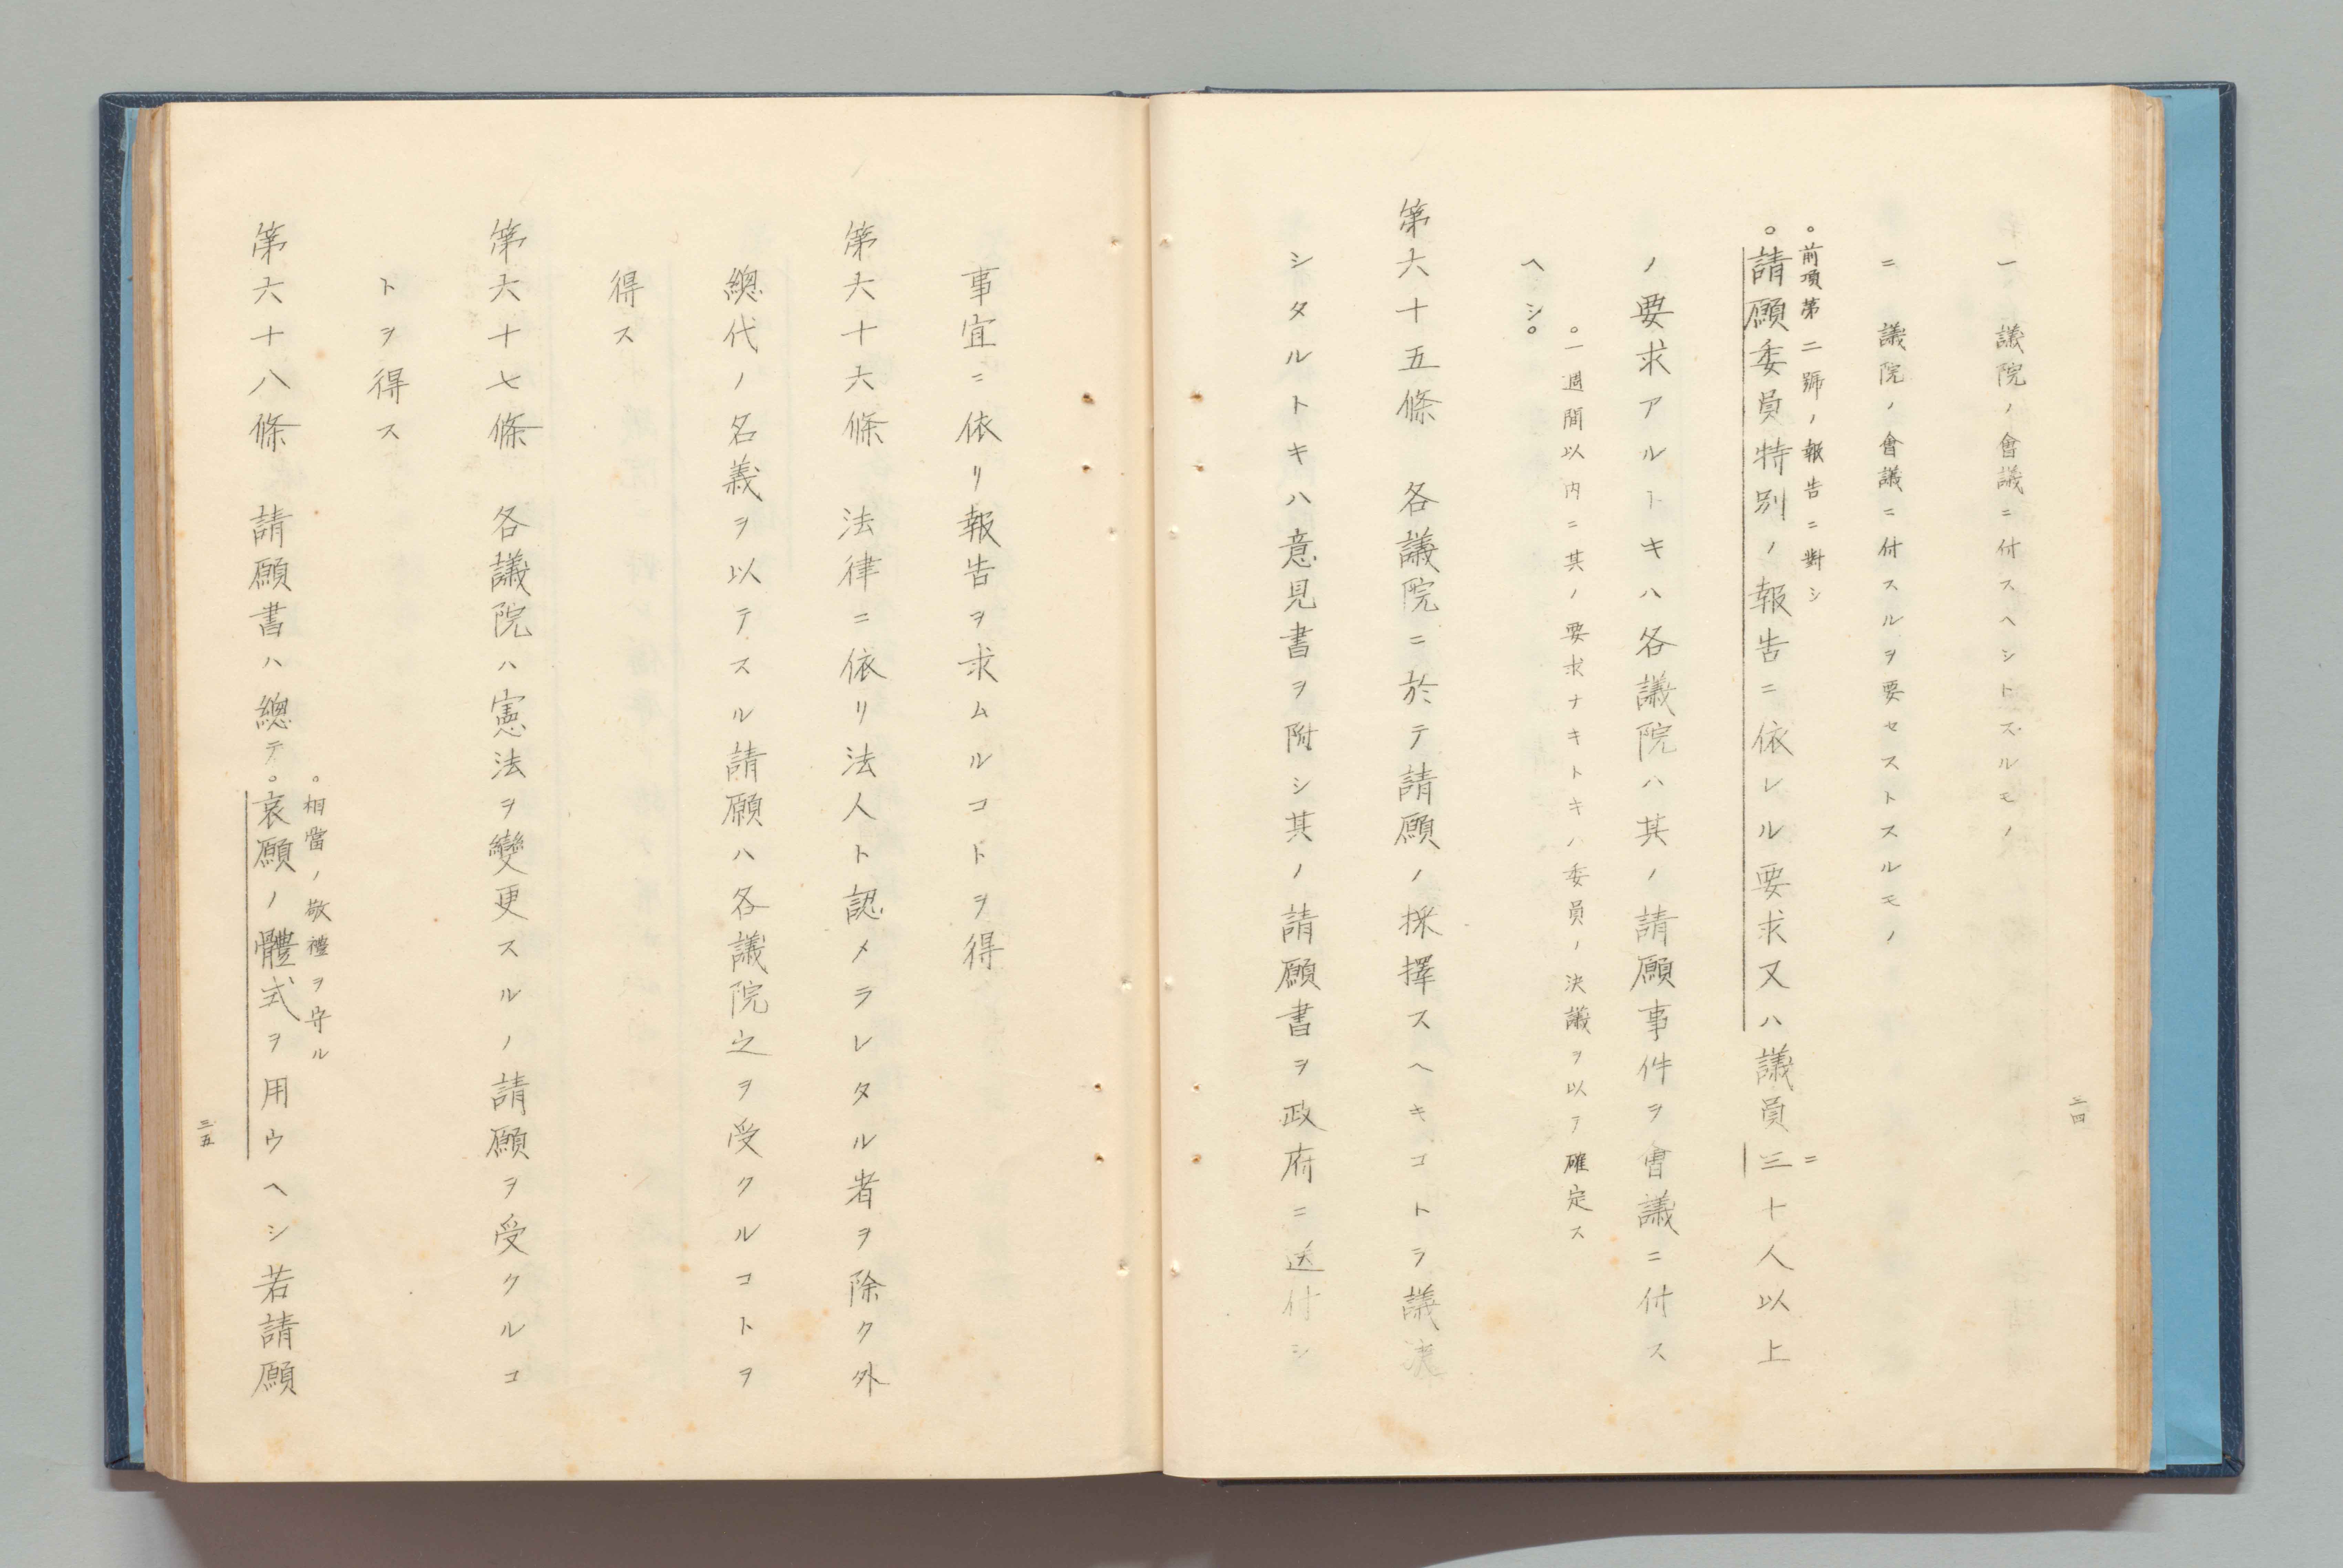 一 議院ノ會議ニ付スヘシトスルモノ
二 議院ノ會議ニ付スルヲ要セストスルモノ
。前項第二號ノ報告ニ對シ
。請願委員特別ノ報告ニ依レル要求又ハ議員三十人以上
二
ノ要求アルトキハ各議院ハ其ノ請願事件ヲ會議ニ付ス
。一週間以内ニ其ノ要求ナキトキハ委員ノ決議ヲ以テ確定ス
ヘシ。
第六十五條 各議院ニ於テ請願ノ採擇スヘキコトヲ議決
シタルトキハ意見書ヲ附シ其ノ請願書ヲ政府ニ送付シ
三四
事宜ニ依リ報告ヲ求ムルコトヲ得
第六十六條 法律ニ依リ法人ト認メラレタル者ヲ除ク外
總代ノ名義ヲ以テスル請願ハ各議院之ヲ受クルコトヲ
得ス
第六十七條 各議院ハ憲法ヲ變更スルノ請願ヲ受クルコ
トヲ得ス
。相當ノ敬禮ヲ守ル
第六十八條 請願書ハ總テ。哀願ノ體式ヲ用ウヘシ若請願
三五